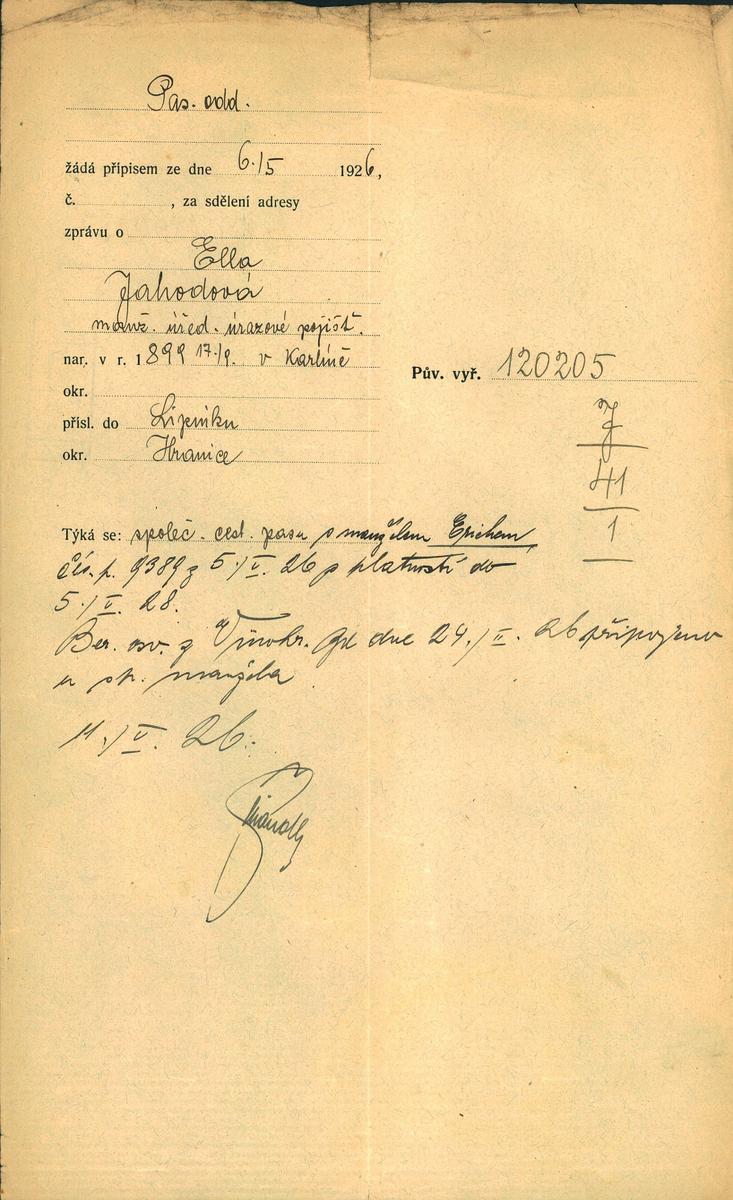 Pas. odd.
žádá přípisem ze dne 6./5 1926,
č. , za sdělení adresy
zprávu o
Ella
Jahodová
manž. úřed. úrazové pojišť.
nar. v r. 1899 17./9. v Karlíně
okr.
přísl. do Lipníku
okr. Hranice
Pův. vyř. 120205
J
41
1
Týká se: společ. cest. pasu s manželem Erichem
čís. p. 9389 z 5./V. 26 s platností do
5./V. 28.
Ber. osv. z Vinohr. dne 24./II. 26 připojeno
u manžela
11./V. 26.